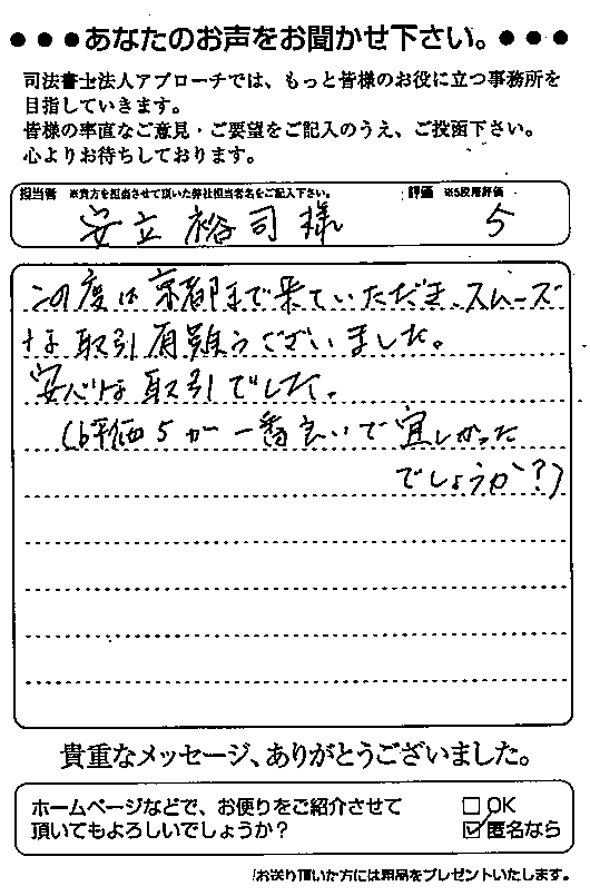 ●●●あなたのお声をお聞かせ下さい。●●●
司法書士法人アプローチでは、もっと皆様のお役に立つ事務所を
目指していきます。
皆様の率直なご意見・ご要望をご記入のうえ、ご投函下さい。
心よりお待ちしております。
担当者 ※貴方を担当させて頂いた弊社担当者名をご記入下さい。 評価 ※5段階評価
安立裕司様 5
この度は京都まで来ていただき、スムーズ
な取引有難うございました。
安心な取引でした。
(評価5が一番良いで宜しかった
でしょうか?)
貴重なメッセージ、ありがとうございました。
ホームページなどで、お便りをご紹介させて
頂いてもよろしいでしょうか?
□OK
☑匿名なら
お送り頂いた方には粗品をプレゼントいたします。